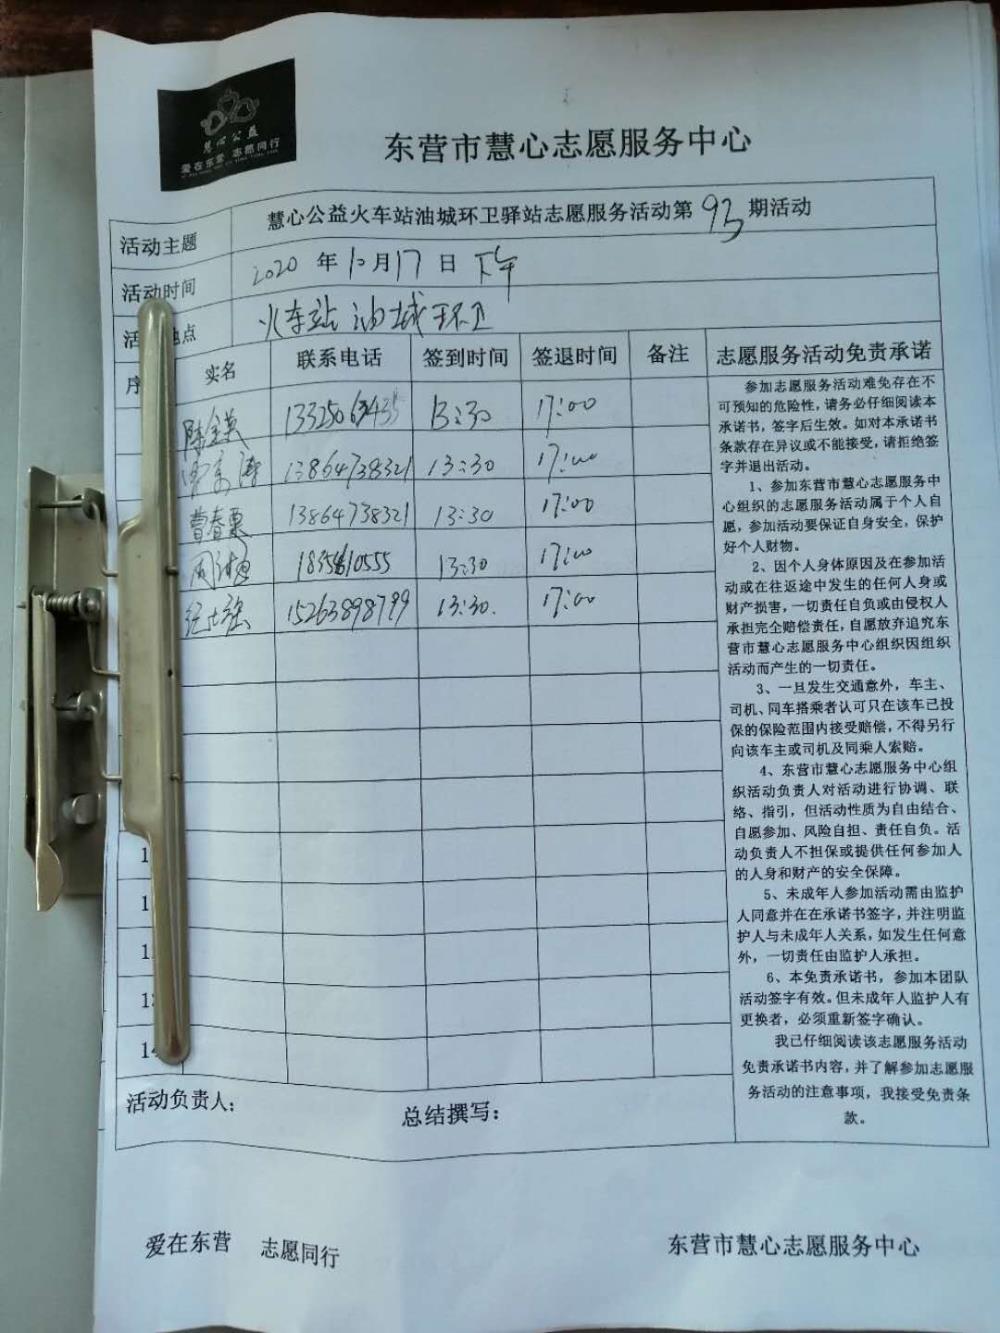 慧心公益
爱在东营 志愿同行
东营市慧心志愿服务中心
活动主题
慧心公益火车站油城环卫驿站志愿服务活动第93期活动
活动时间
2020 年 10月17 日 下午
活 地点
火车站油城环卫
序 实名 联系电话 签到时间 签退时间 备注 志愿服务活动免责承诺
陈金英 13:30 17:00
13864738321 13:30 17:00
曹春栗 13864738321 13:30 17:00
13:30 17:00
15263898799 13:30. 17:00
1
1
1
13
14
参加志愿服务活动难免存在不
可预知的危险性，请务必仔细阅读本
承诺书，签字后生效。如对本承诺书
条款存在异议或不能接受，请拒绝签
字并退出活动。
1、参加东营市慧心志愿服务中
心组织的志愿服务活动属于个人自
愿，参加活动要保证自身安全，保护
好个人财物。
2、因个人身体原因及在参加活
动或在往返途中发生的任何人身或
财产损害，一切责任自负或由侵权人
承担完全赔偿责任，自愿放弃追究东
营市慧心志愿服务中心组织因组织
活动而产生的一切责任。
3、一旦发生交通意外，车主、
司机、同车搭乘者认可只在该车已投
保的保险范围内接受赔偿，不得另行
向该车主或司机及同乘人索赔。
4、东营市慧心志愿服务中心组
织活动负责人对活动进行协调、联
络、指引，但活动性质为自由结合、
自愿参加、风险自担、责任自负。活
动负责人不担保或提供任何参加人
的人身和财产的安全保障。
5、未成年人参加活动需由监护
人同意并在在承诺书签字，并注明监
护人与未成年人关系，如发生任何意
外，一切责任由监护人承担。
6、本免责承诺书，参加本团队
活动签字有效。但未成年人监护人有
更换者，必须重新签字确认。
我已仔细阅读该志愿服务活动
免责承诺书内容，并了解参加志愿服
务活动的注意事项，我接受免责条
款。
活动负责人： 总结撰写：
爱在东营 志愿同行 东营市慧心志愿服务中心